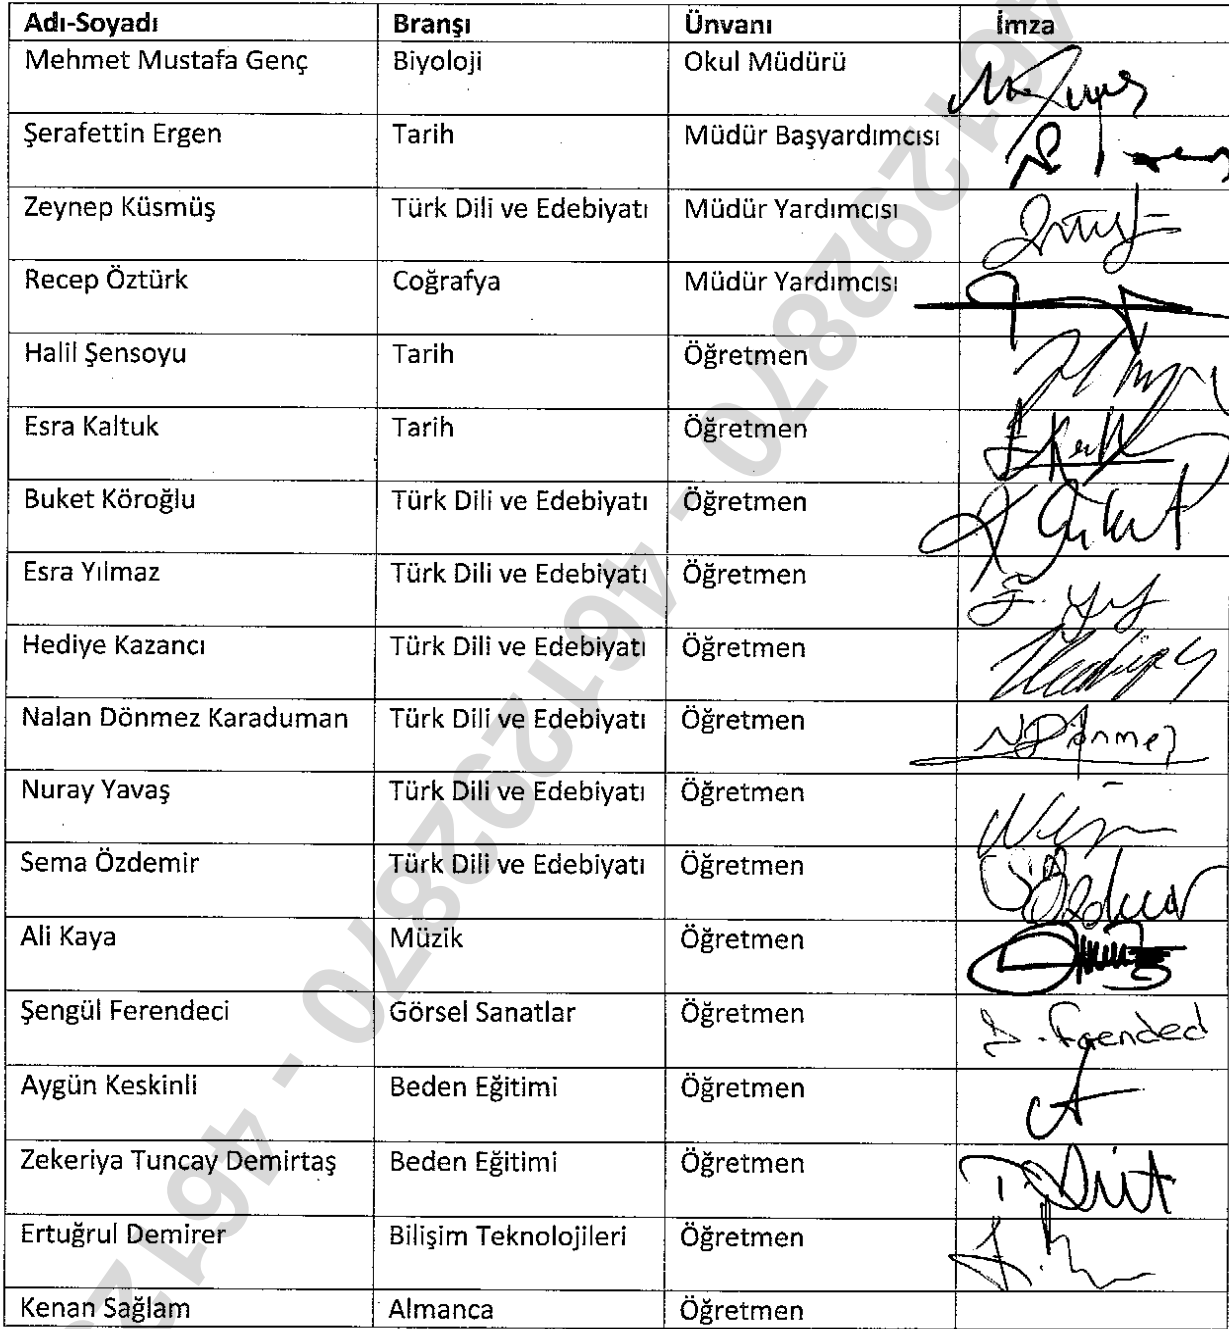 Adı-Soyadı Branşı Ünvanı İmza
Mehmet Mustafa Genç Biyoloji Okul Müdürü
Şerafettin Ergen Tarih Müdür Başyardımcısı
Zeynep Küsmüş Türk Dili ve Edebiyatı Müdür Yardımcısı
Recep Öztürk Coğrafya Müdür Yardımcısı
Halil Şensoyu Tarih Öğretmen
Esra Kaltuk Tarih Öğretmen
Buket Köroğlu Türk Dili ve Edebiyatı Öğretmen
Esra Yılmaz Türk Dili ve Edebiyatı Öğretmen
Hediye Kazancı Türk Dili ve Edebiyatı Öğretmen
Nalan Dönmez Karaduman Türk Dili ve Edebiyatı Öğretmen NDönmez
Nuray Yavaş Türk Dili ve Edebiyatı Öğretmen
Sema Özdemir Türk Dili ve Edebiyatı Öğretmen
Ali Kaya Müzik Öğretmen
Şengül Ferendeci Görsel Sanatlar Öğretmen
Aygün Keskinli Beden Eğitimi Öğretmen
Zekeriya Tuncay Demirtaş Beden Eğitimi Öğretmen
Ertuğrul Demirer Bilişim Teknolojileri Öğretmen
Kenan Sağlam Almanca Öğretmen
461292870 - 461292870 - 4612